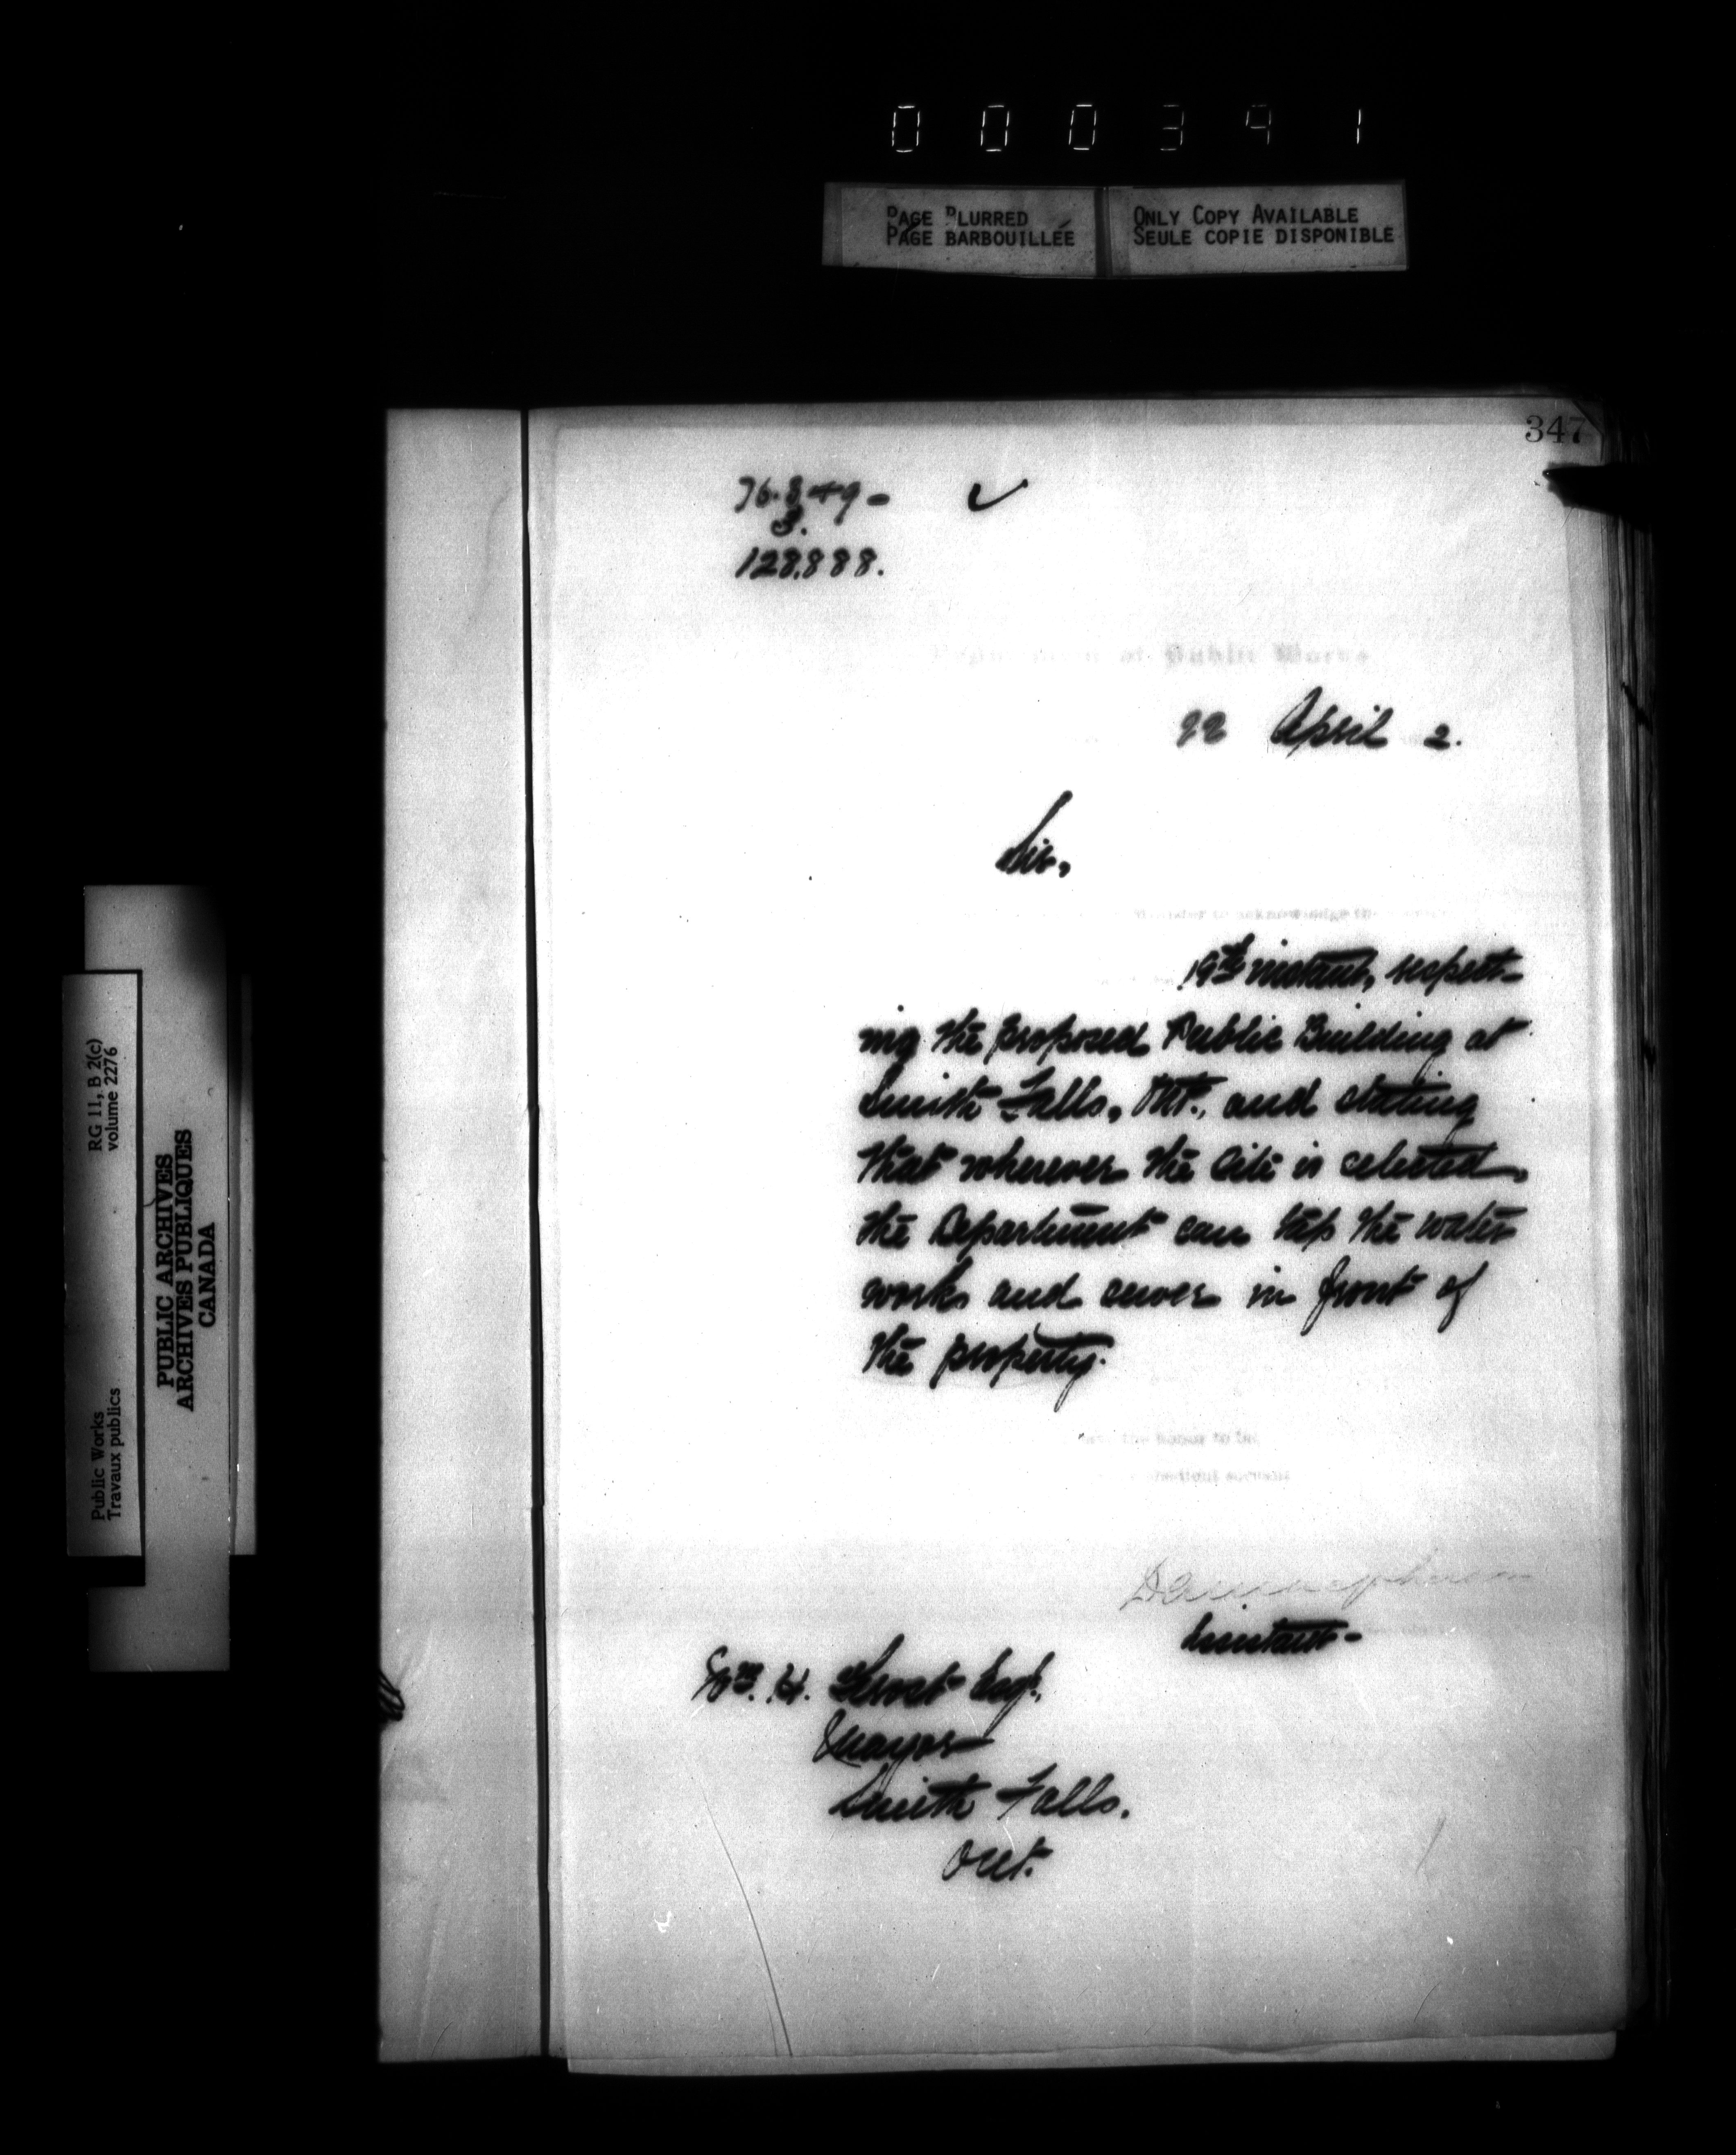 000341
PAGE BLURRED
PAGE BARBOUILLÉE
ONLY COPY AVAILABLE
SEULE COPIE DISPONIBLE
347
76.849-
3.
128,888.
of Public Works
22 April 2.
Sir,
Minister to acknowledge the
19th instant, respect-
ing the proposed Public Building at
Smith Falls, Ont., and stating
that wherever the site is selected,
the Department can tap the water
works and sewer in front of
the property.
the honor to be
obedient servant
Assistant-
Wm. H. Frost Esq.,
Mayor
Smith Falls.
Ont.
Public Works
Travaux publics
RG 11, B 2(c)
volume 2276
PUBLIC ARCHIVES
ARCHIVES PUBLIQUES
CANADA